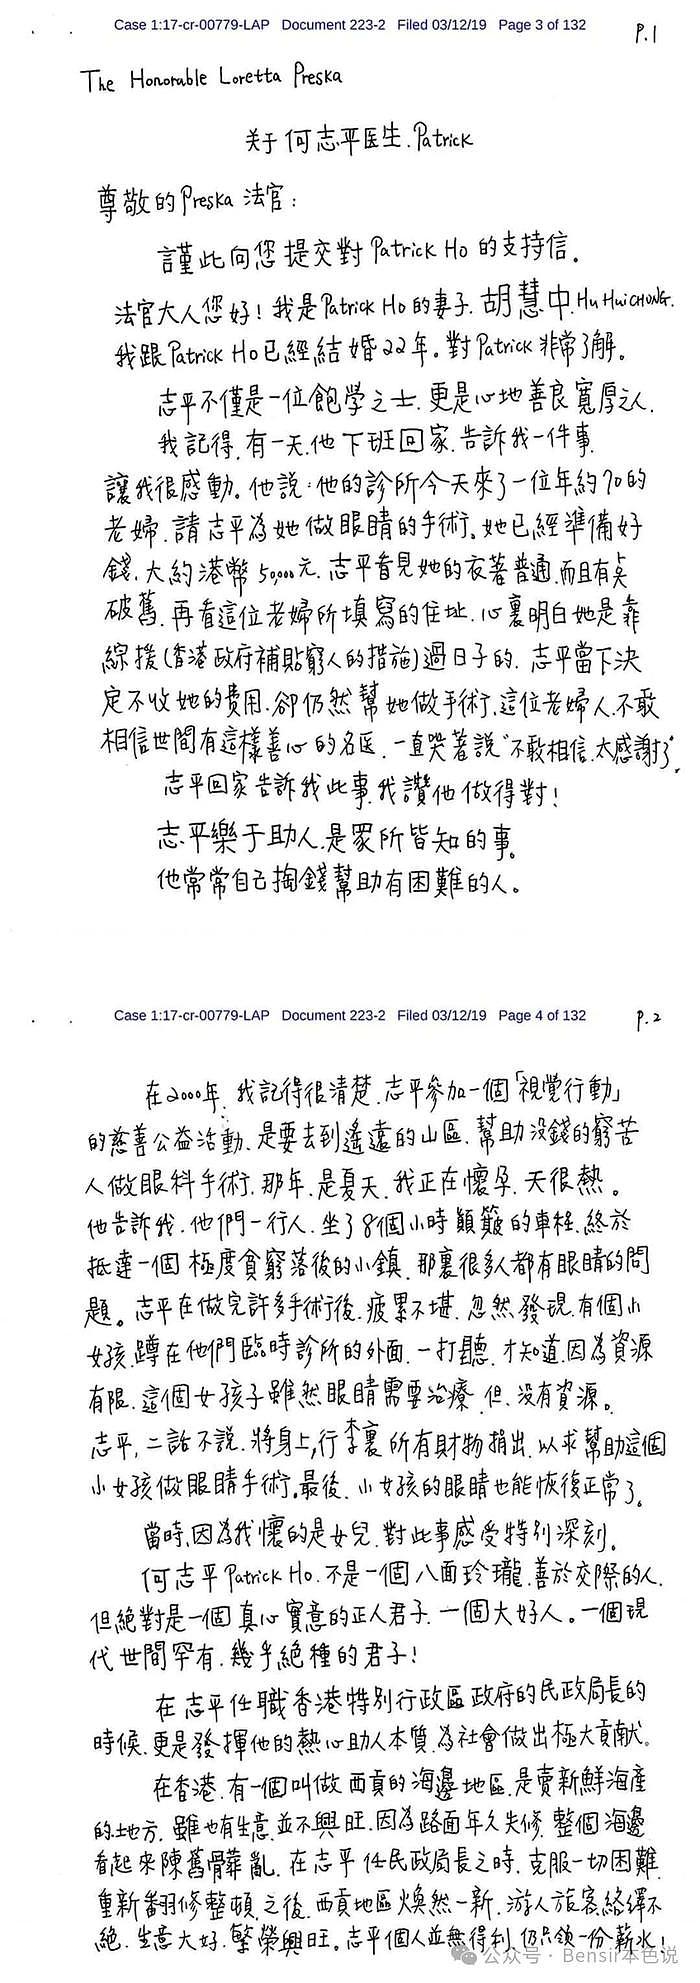 Case 1:17-cr-00779-LAP Document 223-2 Filed 03/12/19 Page 3 of 132
P.1
The Honorable Loretta Preska
关于何志平医生.Patrick
尊敬的Preska法官:
謹此向您提交對Patrick Ho的支持信。
法官大人您好!我是Patrick Ho的妻子.胡慧中.Hu HuiCHONG.
我跟Patrick Ho已經結婚22年。對Patrick非常了解。
志平不僅是一位飽学之士.更是心地善良寬厚之人.
我記得.有一天.他下班回家.告訴我一件事.
讓我很感動。他説:他的診所今天來了一位年約70的
老婦.請志平為她做眼睛的手術。她已經準備好
錢.大約港幣50,000元.志平看見她的衣著普通.而且有点
破舊.再看這位老婦所填寫的住址.心裏明白她是靠
綜援(香港政府補貼窮人的措施)過日子的.志平當下決
定不收她的費用.卻仍然幫她做手術.這位老婦人.不敢
相信世間有這樣善心的名医.一直哭著説"不敢相信.太感謝了".
志平回家告訴我此事.我讚他做得對!
志平樂于助人.是眾所皆知的事。
他常常自己掏錢幫助有困難的人。
Case 1:17-cr-00779-LAP Document 223-2 Filed 03/12/19 Page 4 of 132
P.2
在2000年.我記得很清楚.志平參加一個「視覺行動」
的慈善公益活動.是要去到遙遠的山區.幫助没錢的窮苦
人做眼科手術.那年.是夏天.我正在懷孕.天很熱。
他告訴我.他們一行人.坐了8個小時顛簸的車程.終於
抵達一個極度貧窮落後的小鎮.那裏很多人都有眼睛的問
題。志平在做完許多手術後.疲累不堪.忽然發現.有個小
女孩.蹲在他們臨時診所的外面.一打聽.才知道.因為資源
有限.這個女孩子雖然眼睛需要治療.但.没有資源。
志平,二話不説.將身上,行李裏所有財物捐出.以求幫助這個
小女孩做眼睛手術。最後.小女孩的眼睛也能恢復正常了。
當時.因為我懷的是女兒.對此事感受特別深刻。
何志平Patrick Ho.不是一個八面玲瓏.善於交際的人.
但絕對是一個真心實意的正人君子.一個大好人。一個現
代世間罕有.幾乎絕種的君子!
在志平任職香港特別行政區政府的民政局長的
時候.更是發揮他的熱心助人本質.為社會做出極大貢献。
在香港.有一個叫做西貢的海邊地區.是賣新鮮海產
的地方.雖也有生意.並不興旺.因為路面年久失修.整個海邊
看起來陳舊髒亂.在志平任民政局長之時.克服一切困難.
重新翻修整頓.之後.西貢地區煥然一新.游人旅客絡繹不
絕.生意大好.繁榮興旺。志平個人並無得利.仍只領一份薪水!
公众号·Bensir本色说